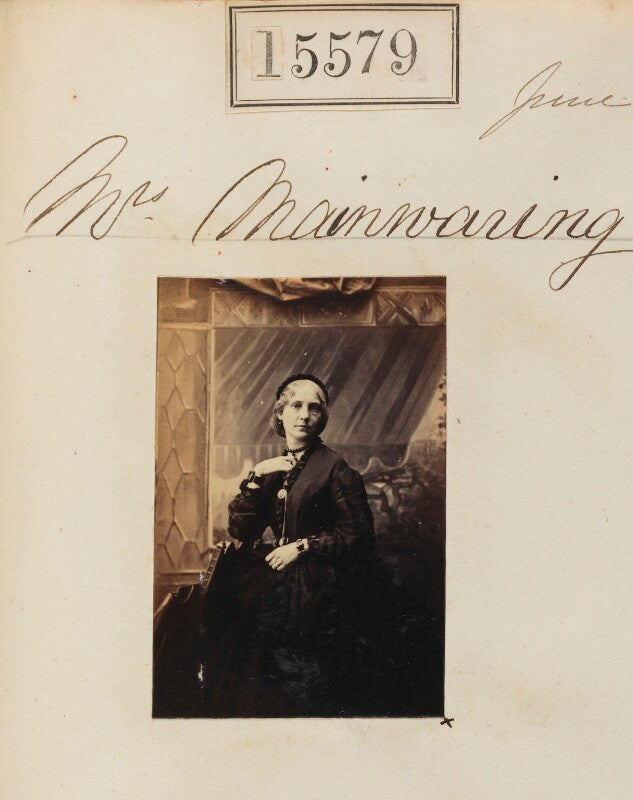 15579
June
Mrs Mainwaring